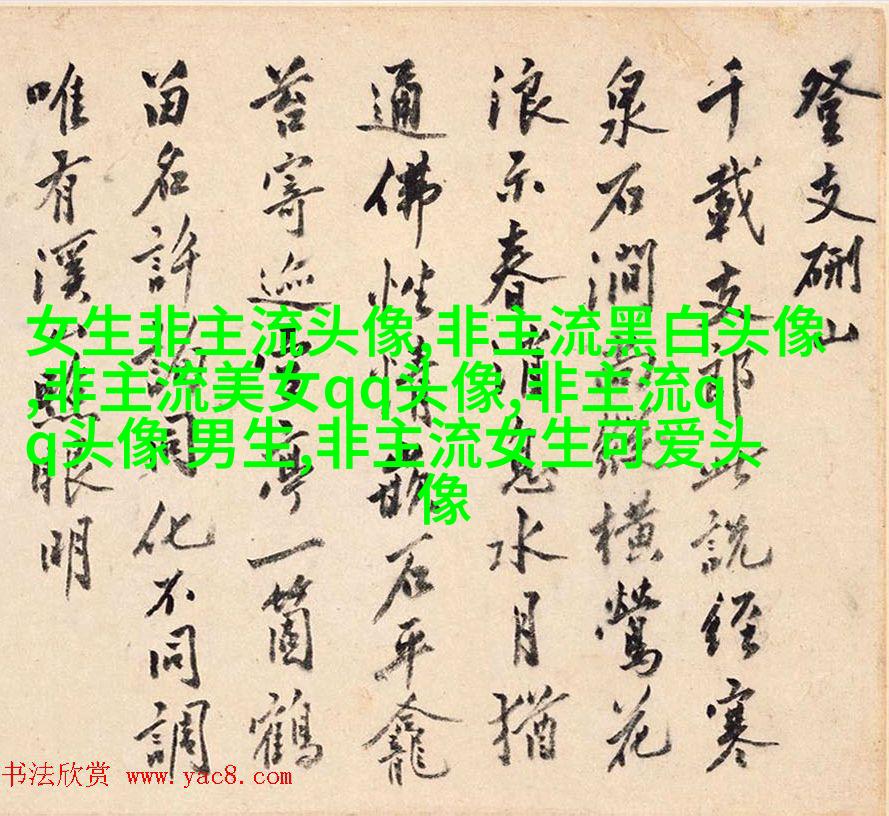 登支硎山
千載支郎此説經寒
泉石澗尚縱橫鶯花
浪示春消息水月猶
通佛性情嵌石平龕
苔寄迹亭一箇鶴
留名許詢同化不同調
唯有溪山照眼明
女生非主流头像,非主流黑白头像
,非主流美女qq头像,非主流q
q头像 男生,非主流女生可爱头
像
书法欣赏 www.yac8.com